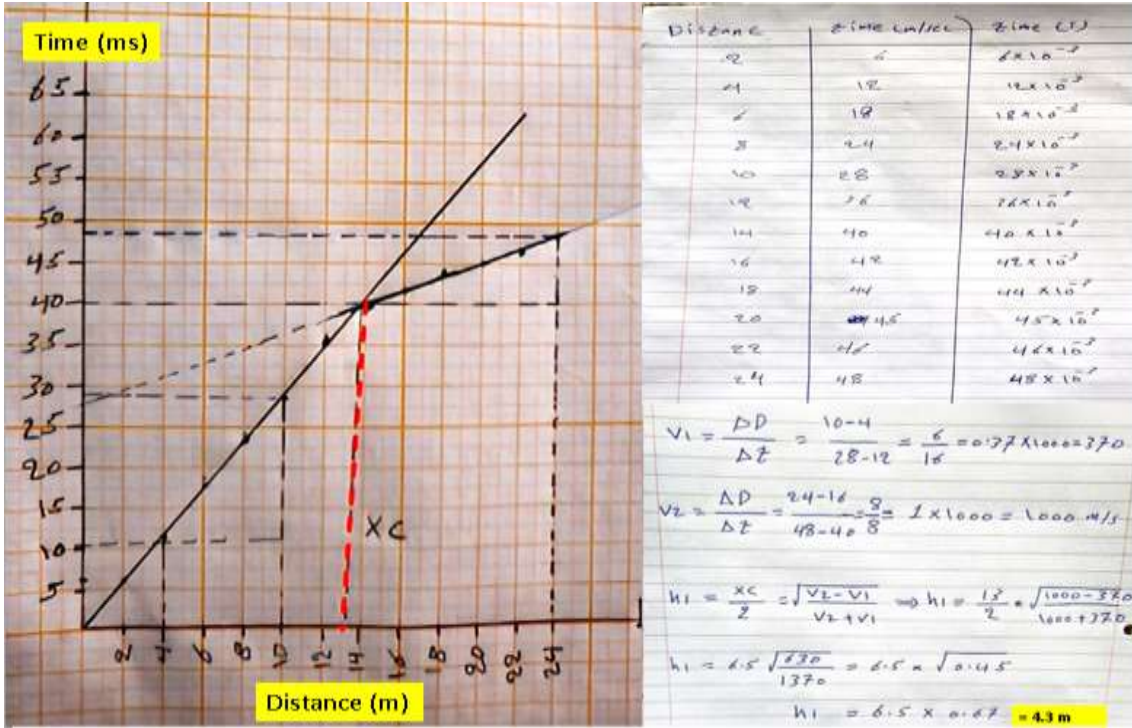 Time (ms)
65
60
55
50
45
40
35
30
25
20
15
10
5
XC
2 4 6 8 10 12 14 16 18 20 22 24
Distance (m)
Distance time (m/sec) time (s)
2 6 6×10⁻³
4 12 12×10⁻³
6 18 18×10⁻³
8 24 24×10⁻³
10 28 28×10⁻³
12 36 36×10⁻³
14 40 40×10⁻³
16 42 42×10⁻³
18 44 44×10⁻³
20 45 45×10⁻³
22 46 46×10⁻³
24 48 48×10⁻³
V1 = ΔD/Δt = 10-4/28-12 = 6/16 = 0.37×1000=370
V2 = ΔD/Δt = 24-16/48-40 = 8/8 = 1×1000 = 1000 m/s
h1 = xc/2 = √V2-V1/V2+V1 ⇒ h1 = 13/2 * √1000-370/1000+370
h1 = 6.5 √630/1370 = 6.5 × √0.45
h1 = 6.5 × 0.67 = 4.3 m